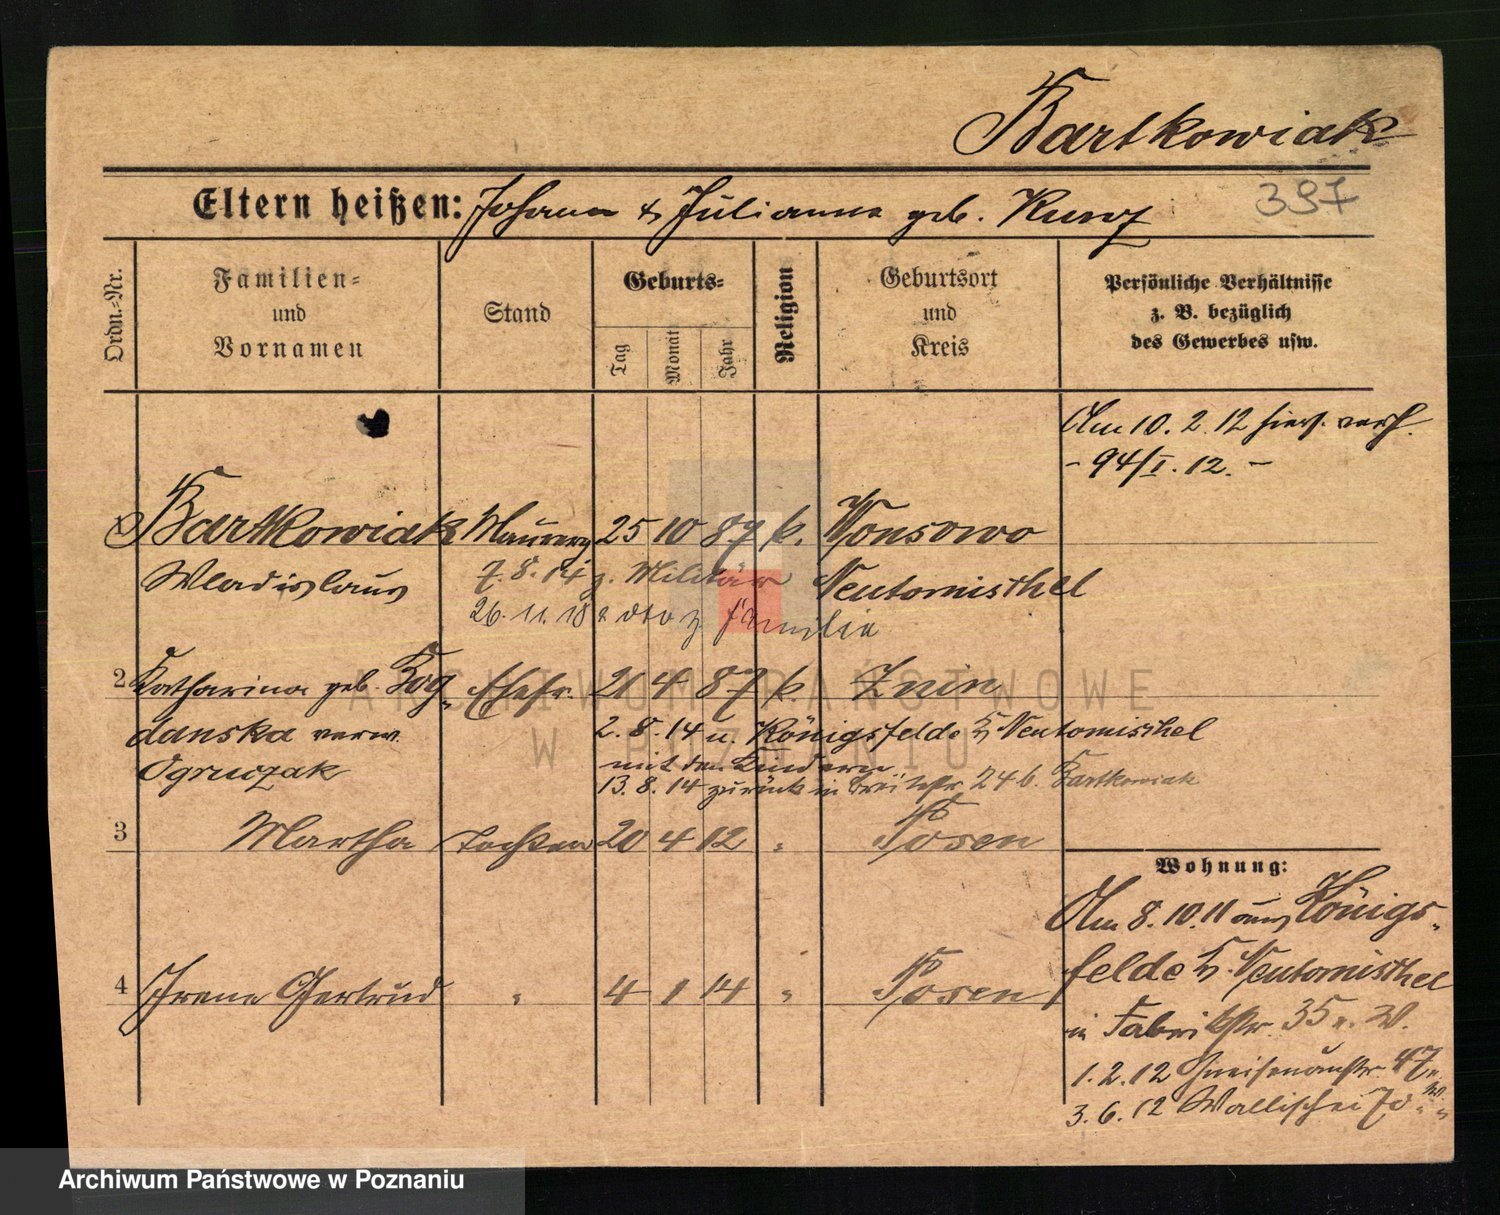 Bartkowiak
Eltern heißen: Johann & Julianna geb. Kunz
397
Ordn.-Nr.
Familien- und Vornamen
Stand
Geburts-
Tag
Monat
Jahr
Religion
Geburtsort und Kreis
Persönliche Verhältnisse
z. B. bezüglich
des Gewerbes usw.
Am 10. 2. 12 hies. verh.
- 94/I. 12. -
1 Bartkowiak Maurerg 25 10 87 k. Wonsowo
Wladislaus 7. 8. 14 z. Militär Neutomischel
26. 11. 18 z Familie
2 Katharina geb. Bog- Ehefr. 21 4 87 k. Znin
danska verw. 2. 8. 14 n. Königsfelde Kr. Neutomischel
mit den Kindern
Ogruczak 13. 8. 14 zurück in Breitestr. 24 b. Bartkowiak
3 Martha Tochter 20 4 12 " Posen
4 Irene Gertrud " 4 1 14 " Posen
Wohnung:
Am 8. 10. 11 aus Königs-
felde Kr. Neutomischel
in Fabrikstr. 35 b. W.
1. 2. 12 Gneisenaustr. 47
3. 6. 12 Wallischei 70
ARCHIWUM PAŃSTWOWE
W POZNANIU
Archiwum Państwowe w Poznaniu